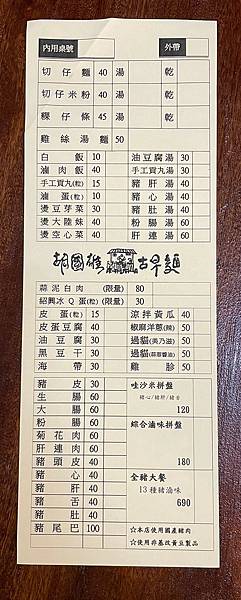 內用桌號 外帶
切仔麵 40 湯 乾
切仔米粉 40 湯 乾
粿仔條 45 湯 乾
雞絲湯麵 50
白飯 10 油豆腐湯 30
滷肉飯 30 手工貢丸湯 30
手工貢丸(粒) 15 豬肝湯 40
滷蛋(粒) 10 豬心湯 40
燙豆芽菜 30 豬肚湯 40
燙大陸妹 40 粉腸湯 60
燙空心菜 40 肝連湯 60
胡國雄古早麵
蒜泥白肉 (限量) 80
紹興冰Q蛋(粒) (限量) 30
皮蛋(粒) 15 涼拌黃瓜 40
皮蛋豆腐 40 椒麻洋蔥(辣) 50
油豆腐 30 過貓(美乃滋) 50
黑豆干 30 過貓(蒜蓉醬油) 50
海帶 30 雞胗 50
豬皮 30 哇沙米拼盤
生腸 60 豬心/豬肝/豬舌
大腸 60 120
粉腸 60 綜合滷味拼盤
菊花肉 60
肝連肉 60
豬頭皮 40 180
豬心 40 全豬大餐
豬肝 40 13種豬滷味
豬舌 40 690
豬肚 40 ☆本店使用國產豬肉
豬尾巴 100 ☆使用非基改黃豆製品